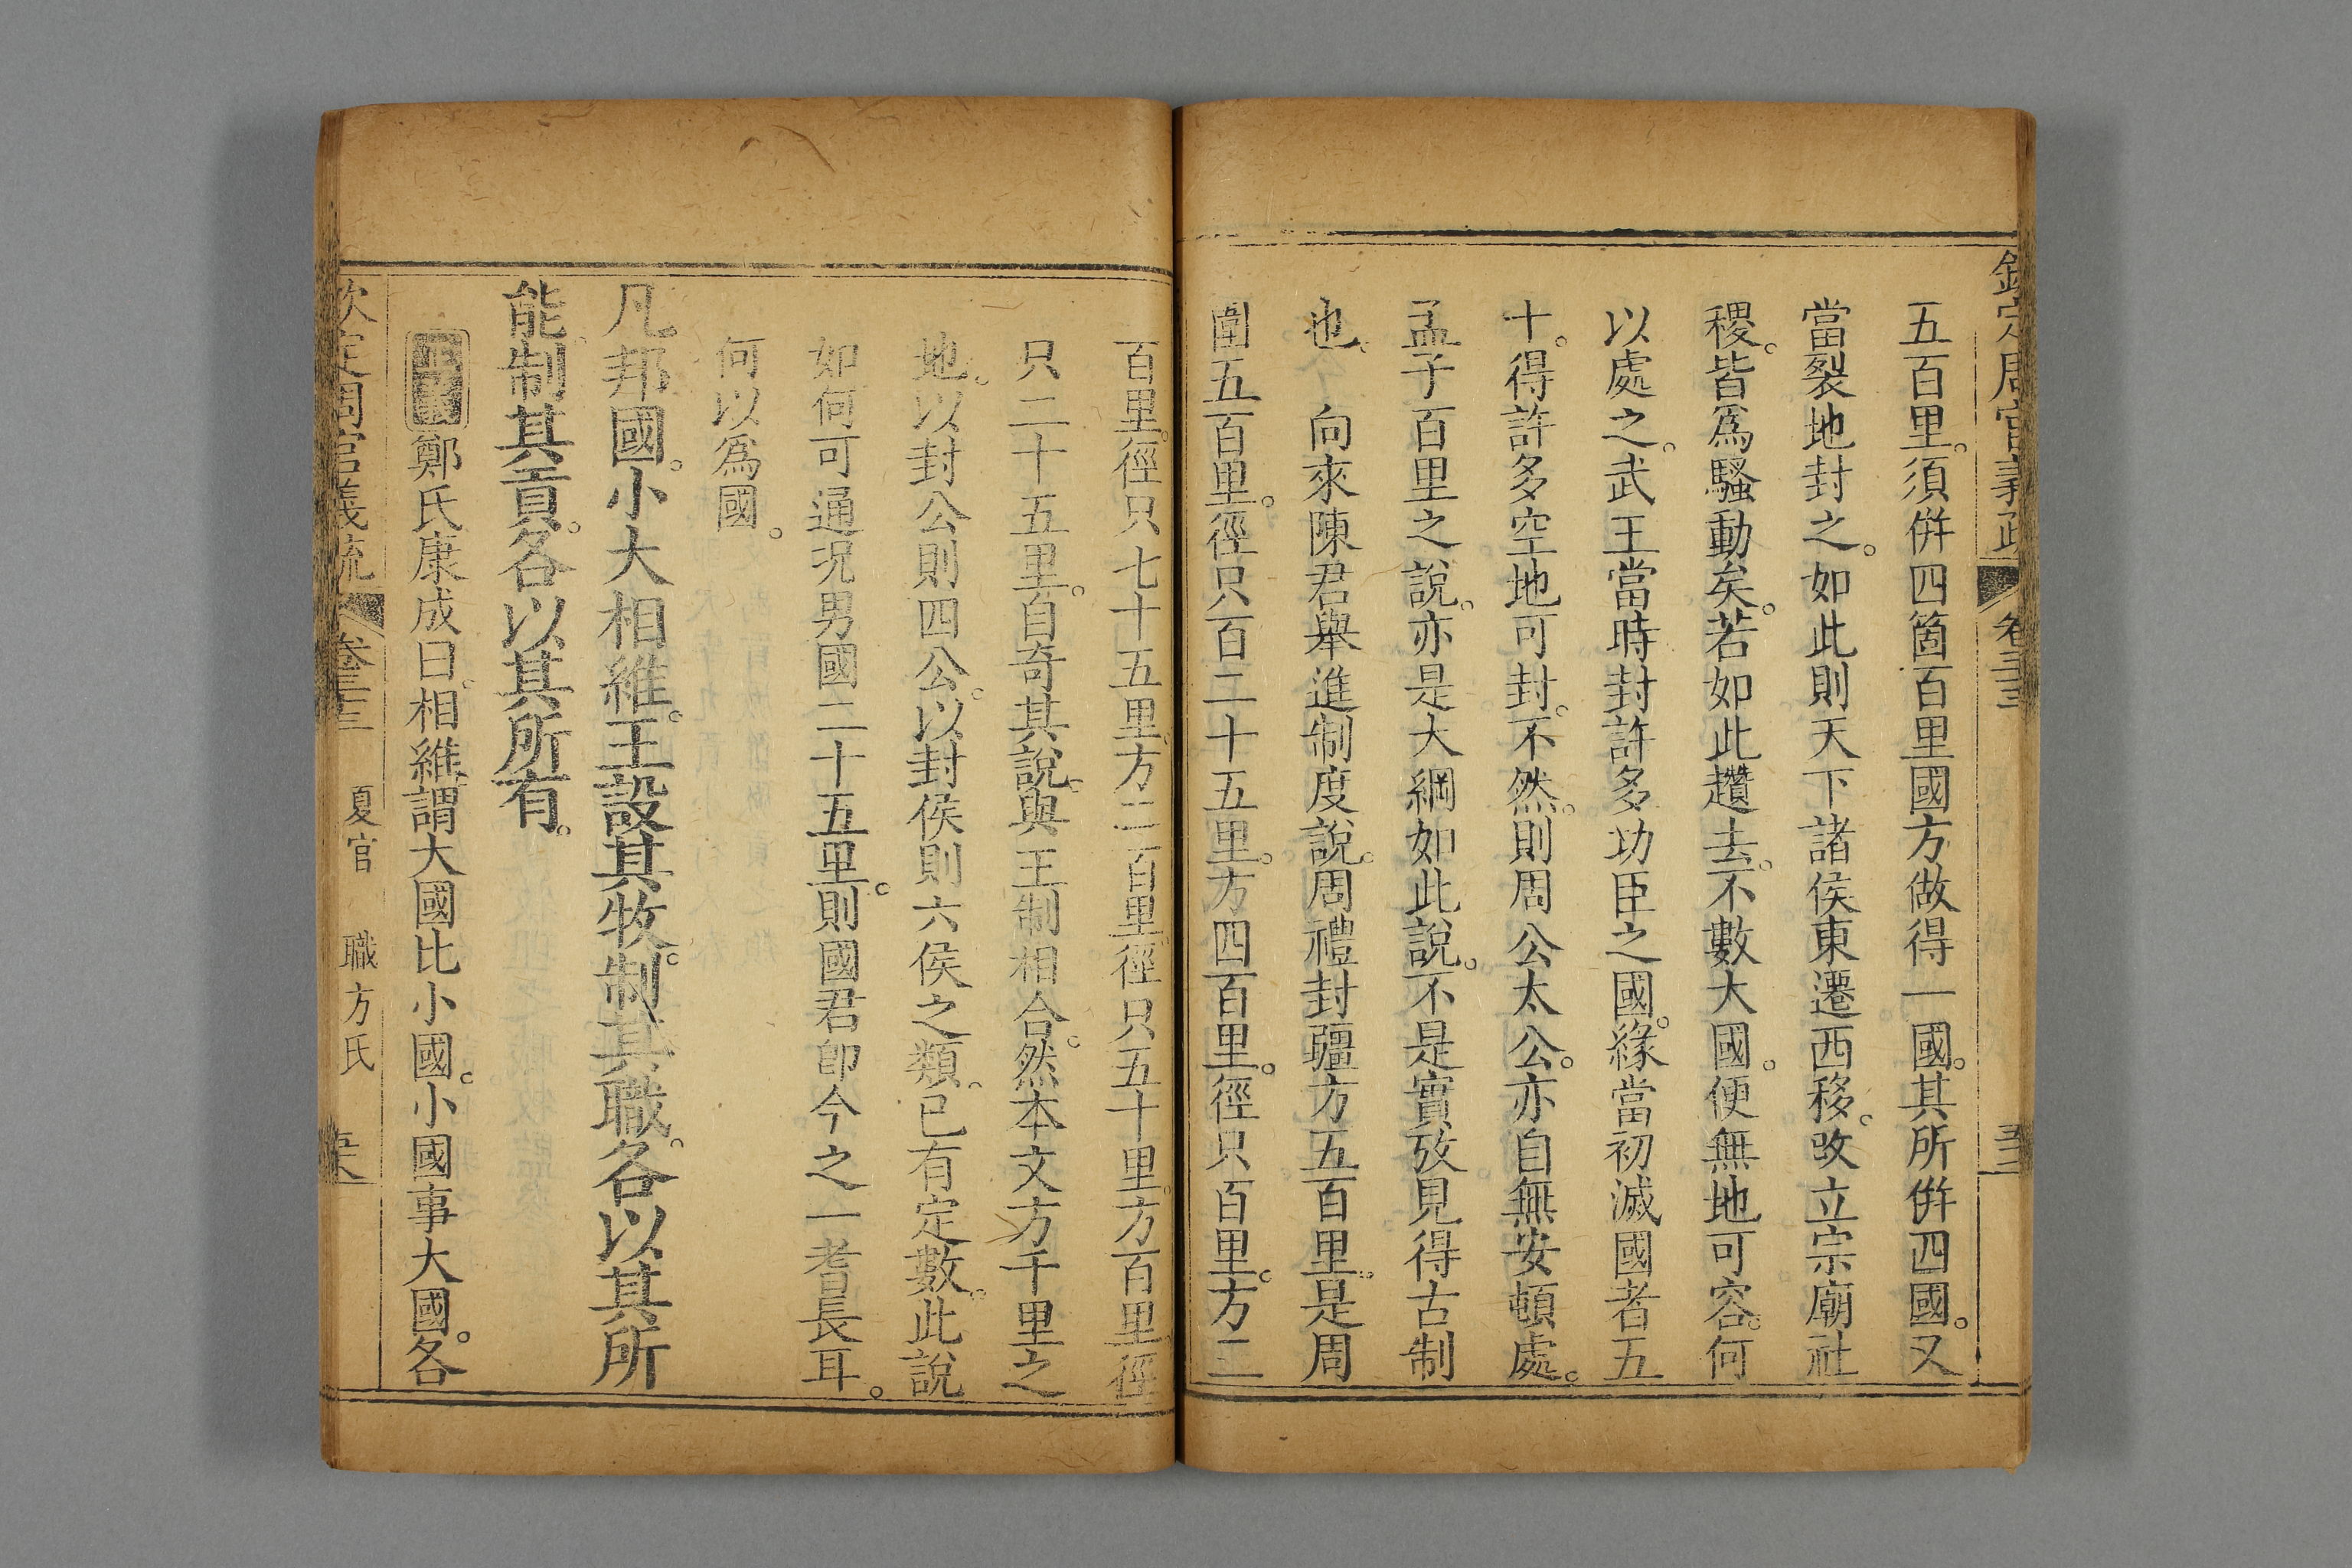 欽定周官義疏 卷三十三
五百里。須倂四箇百里國方做得一國。其所倂四國。又
當裂地封之。如此則天下諸侯東遷西移。改立宗廟社
稷。皆爲騷動矣。若如此趲去。不數大國。便無地可容。何
以處之。武王當時封許多功臣之國。緣當初滅國者五
十。得許多空地可封。不然。則周公太公。亦自無安頓處。
孟子百里之說。亦是大綱如此說。不是實攷見得古制
也。 向來陳君舉進制度說。周禮封疆方五百里。是周
圍五百里。徑只百二十五里。方四百里。徑只百里。方三
百里。徑只七十五里。方二百里。徑只五十里。方百里。徑
只二十五里。自奇其說。與王制相合。然本文方千里之
地。以封公則四公。以封侯則六侯之類。已有定數。此說
如何可通。況男國二十五里。則國君卽今之一耆長耳。
何以爲國。
凡邦國。小大相維。王設其牧。制其職。各以其所
能。制其貢。各以其所有。
鄭氏康成曰。相維。謂大國比小國。小國事大國。各
欽定周官義疏 卷三十三 夏官 職方氏